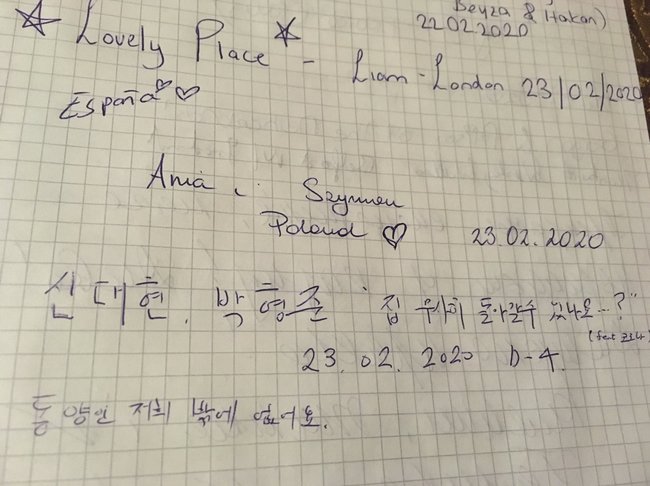 Beyza & Hakan)
22.02.2020
Lovely Place - Liam - London 23/02/2020
España
Ania i Szymon
Poland ♡ 23.02.2020
신대현, 박형준 "집 무사히 돌아갈수 있나요...?"
(feat 코로나)
23. 02. 2020 D-4.
동양인 저희 밖에 없어요.